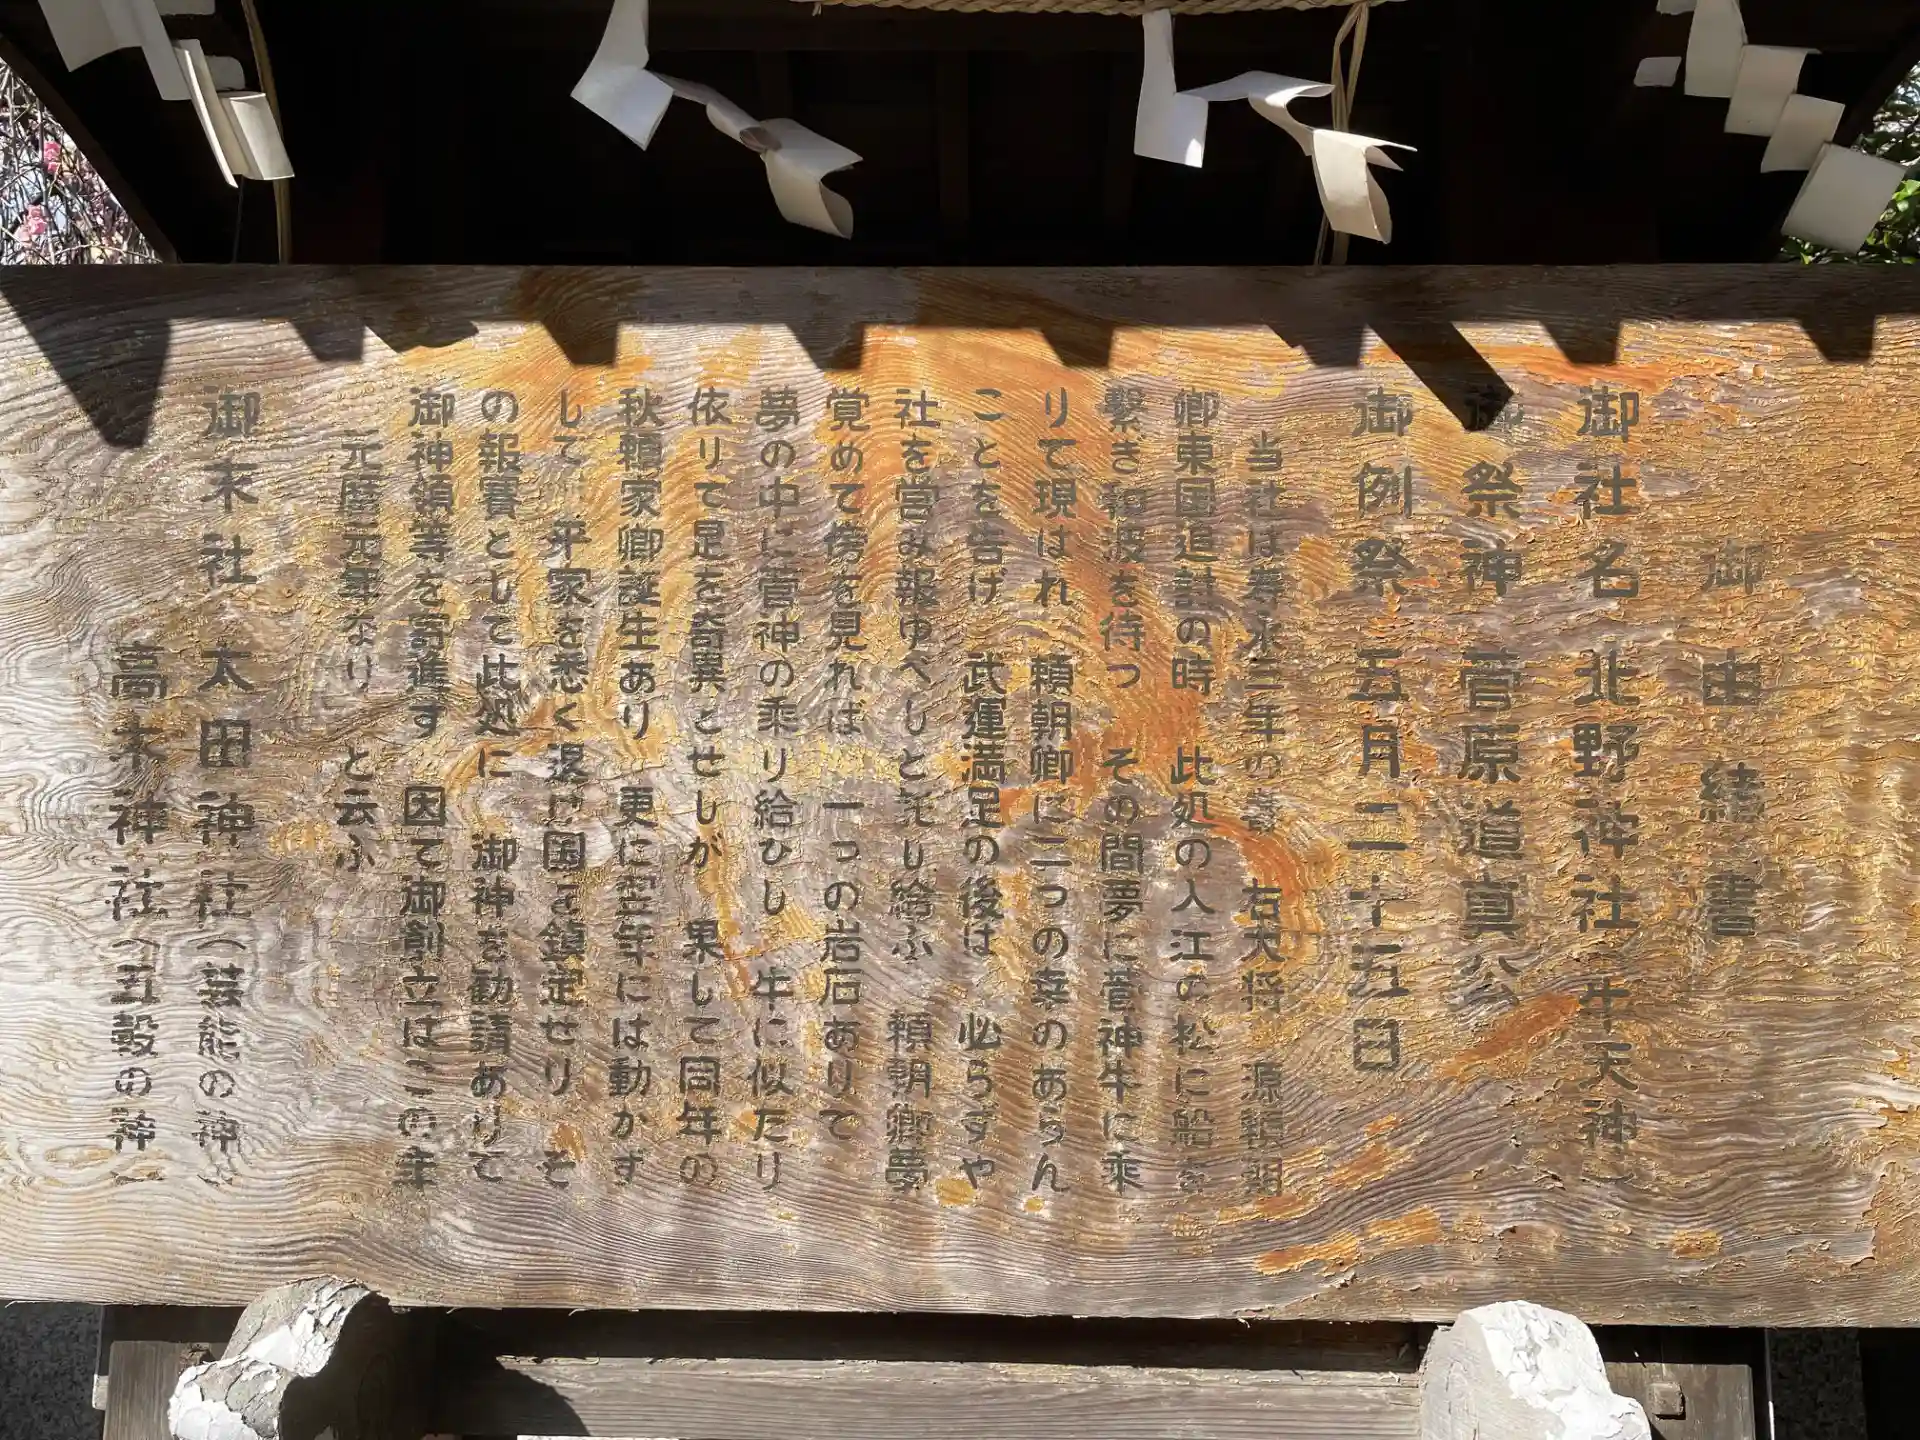 御由緒書
御社名 北野神社(牛天神)
御祭神 菅原道真公
御例祭 五月二十五日
当社は寿永三年の春 右大将 源頼朝
卿東国追討の時 此処の入江の松に船を
繋き和波を待つ その間夢に菅神牛に乗
りて現はれ 頼朝卿に二つの幸のあらん
ことを告げ 武運満足の後は 必らずや
社を営み報ゆべしと託し給ふ 頼朝卿夢
覚めて傍を見れば 一つの岩石ありて
夢の中に菅神の乗り給ひし 牛に似たり
依りて是を奇異とせしが 果して同年の
秋頼家卿誕生あり 更に翌年には動かず
して 平家を悉く退け国を鎮定せり そ
の報賽として此処に 御神を勧請ありて
御神領等を寄進す 因て御創立はこの年
元暦元年なり と云ふ
御末社 太田神社(芸能の神)
高木神社(五穀の神)